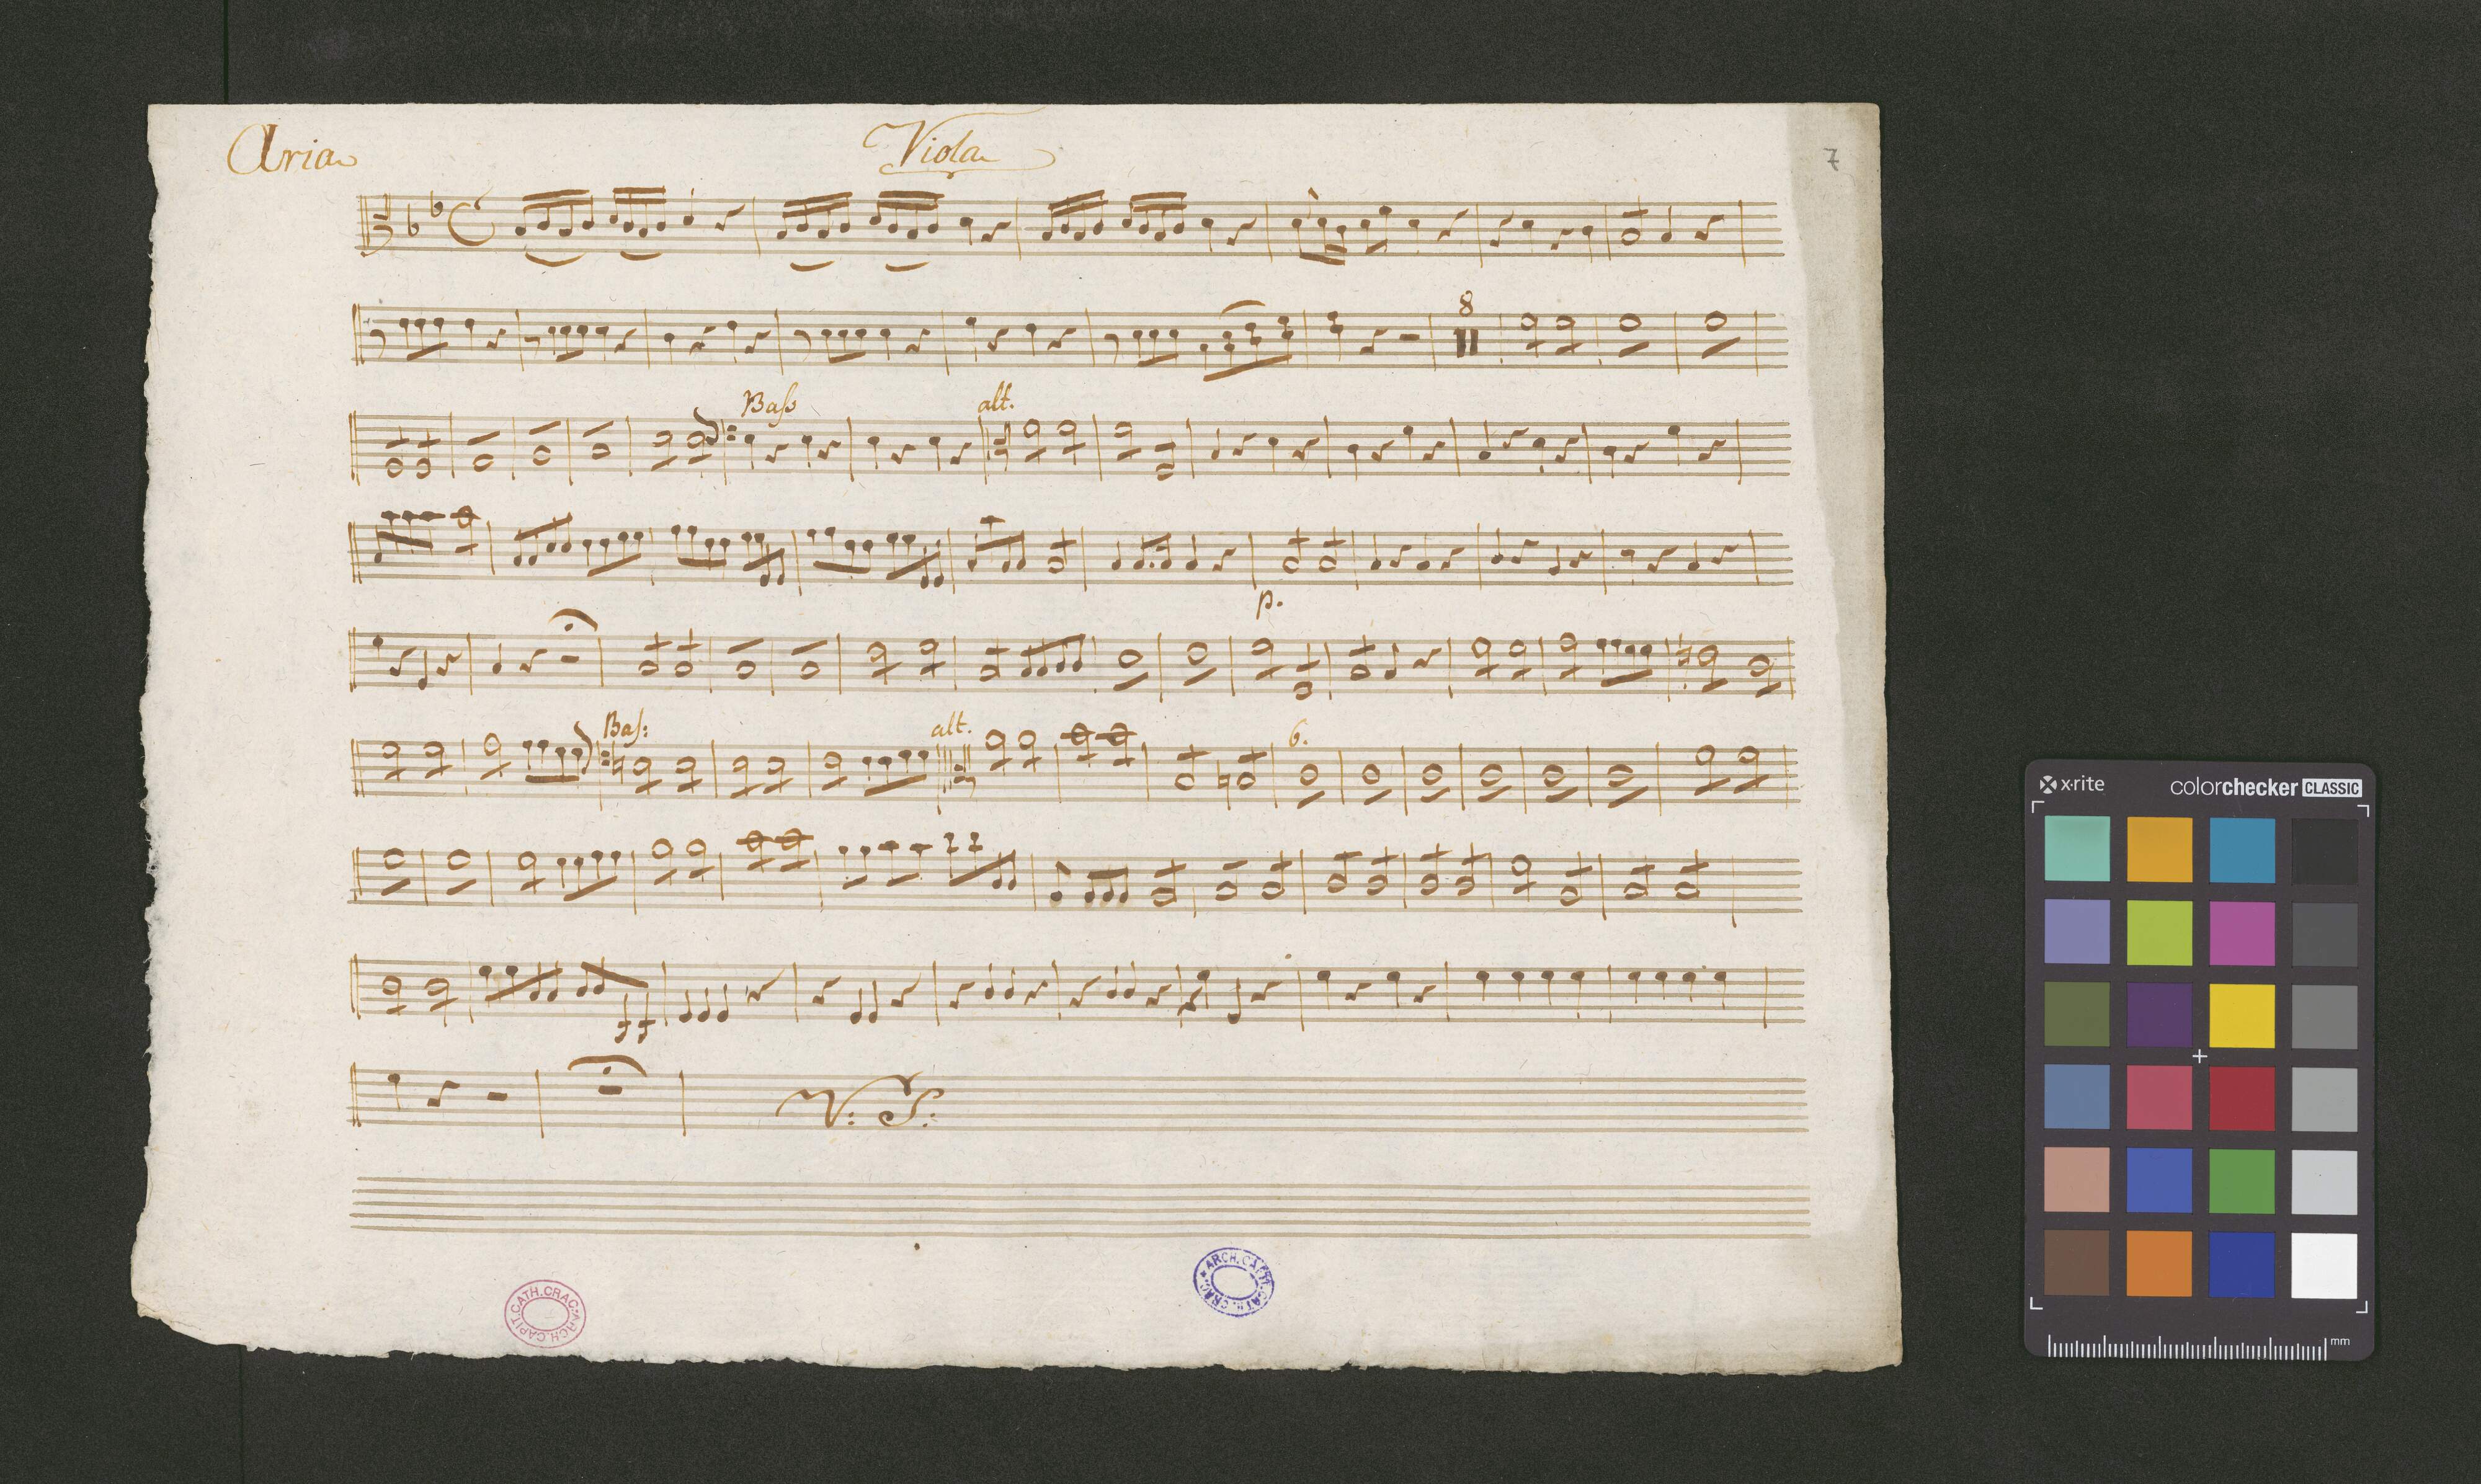 Aria
Viola
7
8
Baſs
alt.
p.
Baſ:
alt.
6.
V: S:
CATH.CRAC. ARCH.CAPIT.
ARCH.CAPIT.CATH.CRAC.
x-rite
colorchecker CLASSIC
mm